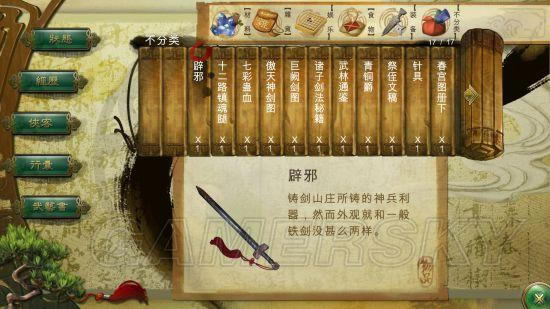 材料
雜貨
娱乐
食物
装备
不分类
不分类
17 / 17
狀態
經歷
俠客
行囊
武藝書
辟邪 x1
十二路镇魂腿 x1
七彩蛊血 x1
傲天神剑图 x1
巨阙剑图 x1
诸子剑法秘籍 x1
武林通鉴 x1
青铜爵 x1
祭侄文稿 x1
针具 x1
春宫图册下 x1
辟邪
铸剑山庄所铸的神兵利
器，然而外观就和一般
铁剑没甚么两样。
物品
GAMERSKY